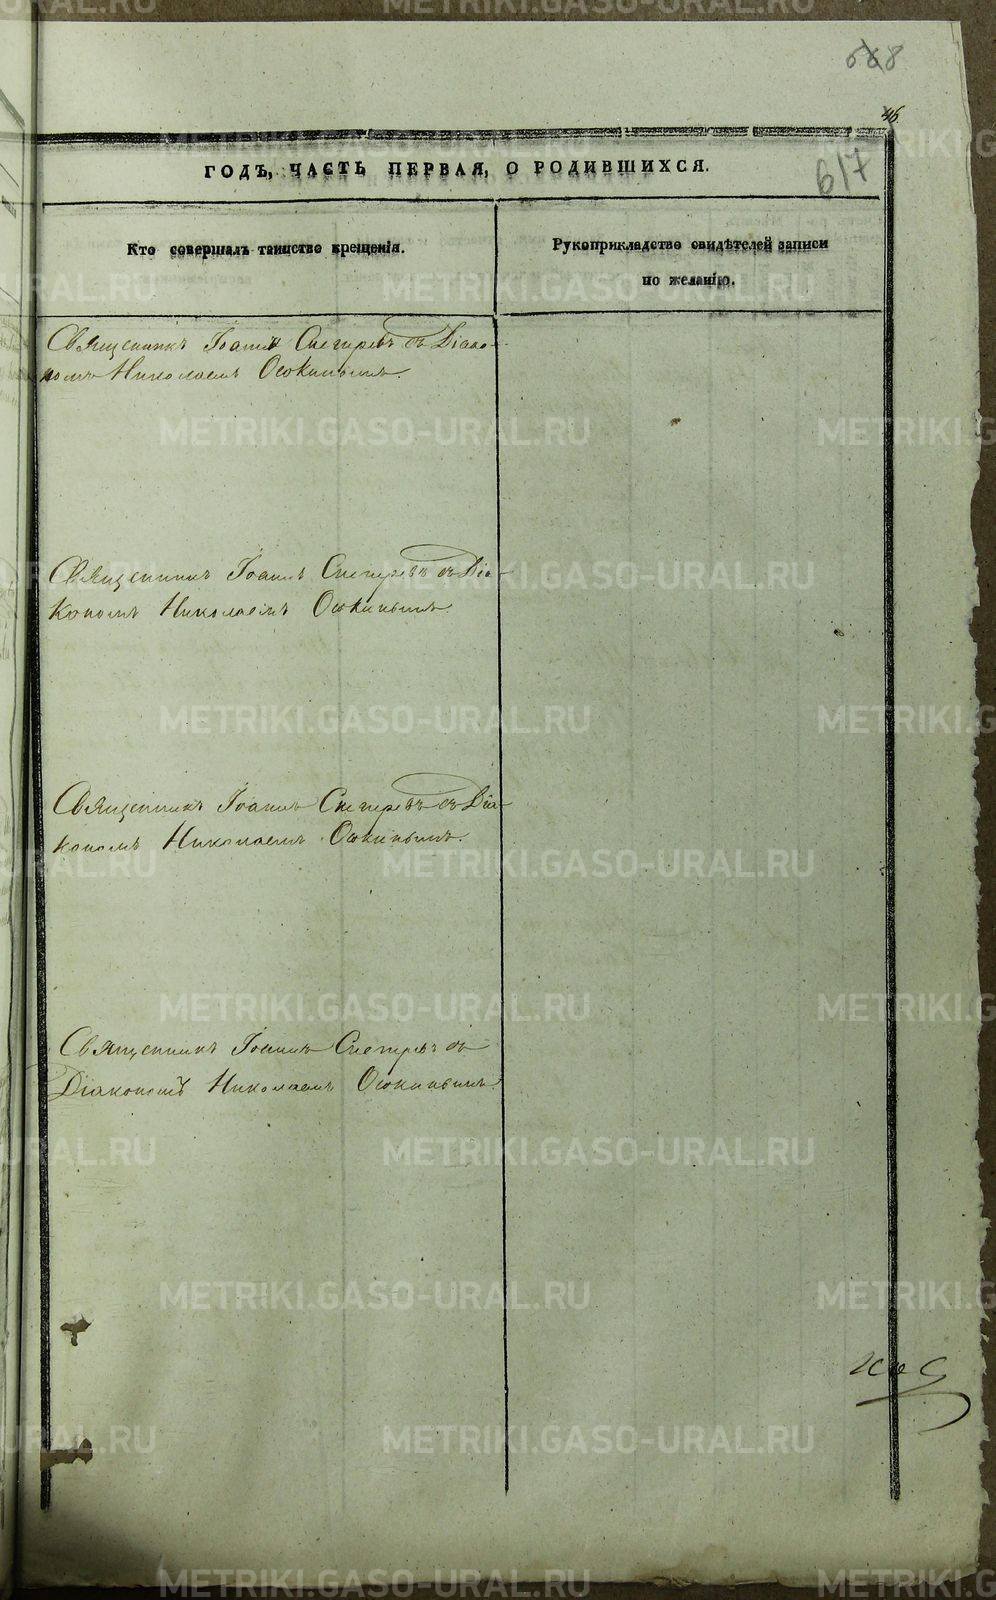 668
46
617
ГОДЪ, ЧАСТЬ ПЕРВАЯ, О РОДИВШИХСЯ.
Кто совершалъ таинство крещенія.
Рукоприкладство свидѣтелей записи
по желанію.
Священникъ Іоаннъ Снегиревъ съ Діако-
номъ Николаемъ Осокинымъ.
Священникъ Іоаннъ Снегиревъ съ Діа-
кономъ Николаемъ Осокинымъ
Священникъ Іоаннъ Снегиревъ съ Діа-
кономъ Николаемъ Осокинымъ.
Священникъ Іоаннъ Снегиревъ съ
Діакономъ Николаемъ Осокинымъ.
METRIKI.GASO-URAL.RU